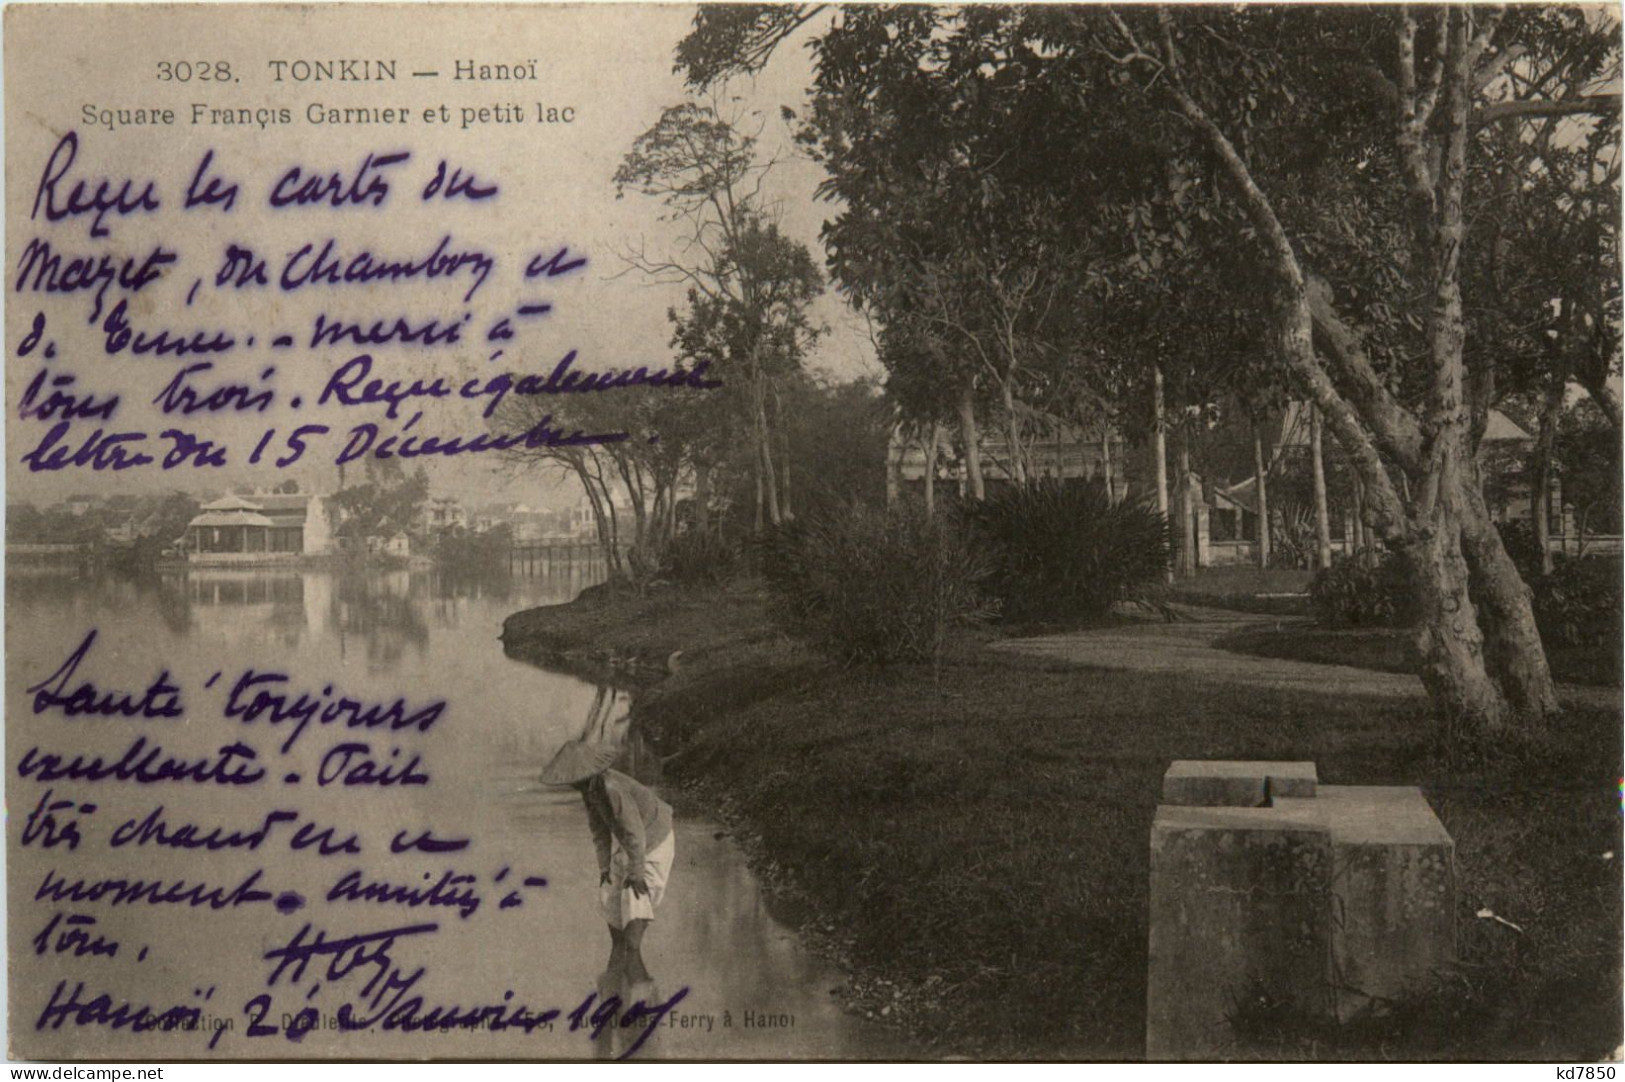 3028. TONKIN — Hanoï
Square Françis Garnier et petit lac
Reçu les carts du
Mazet, du Chambon et
d.
merci à
tous trois. Reçu également
lettre du 15 Décembre.
Santé toujours
excellente - Fait
très chaud en ce
moment. Amitiés à
tous.
Hanoï, 20 Janvier 1905
Collection P. Dieulefils, Photographe, 53, Rue Jules-Ferry à Hanoï
www.delcampe.net
kd7850